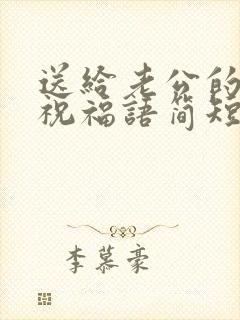 送給老公的
祝福語簡短
李慕豪